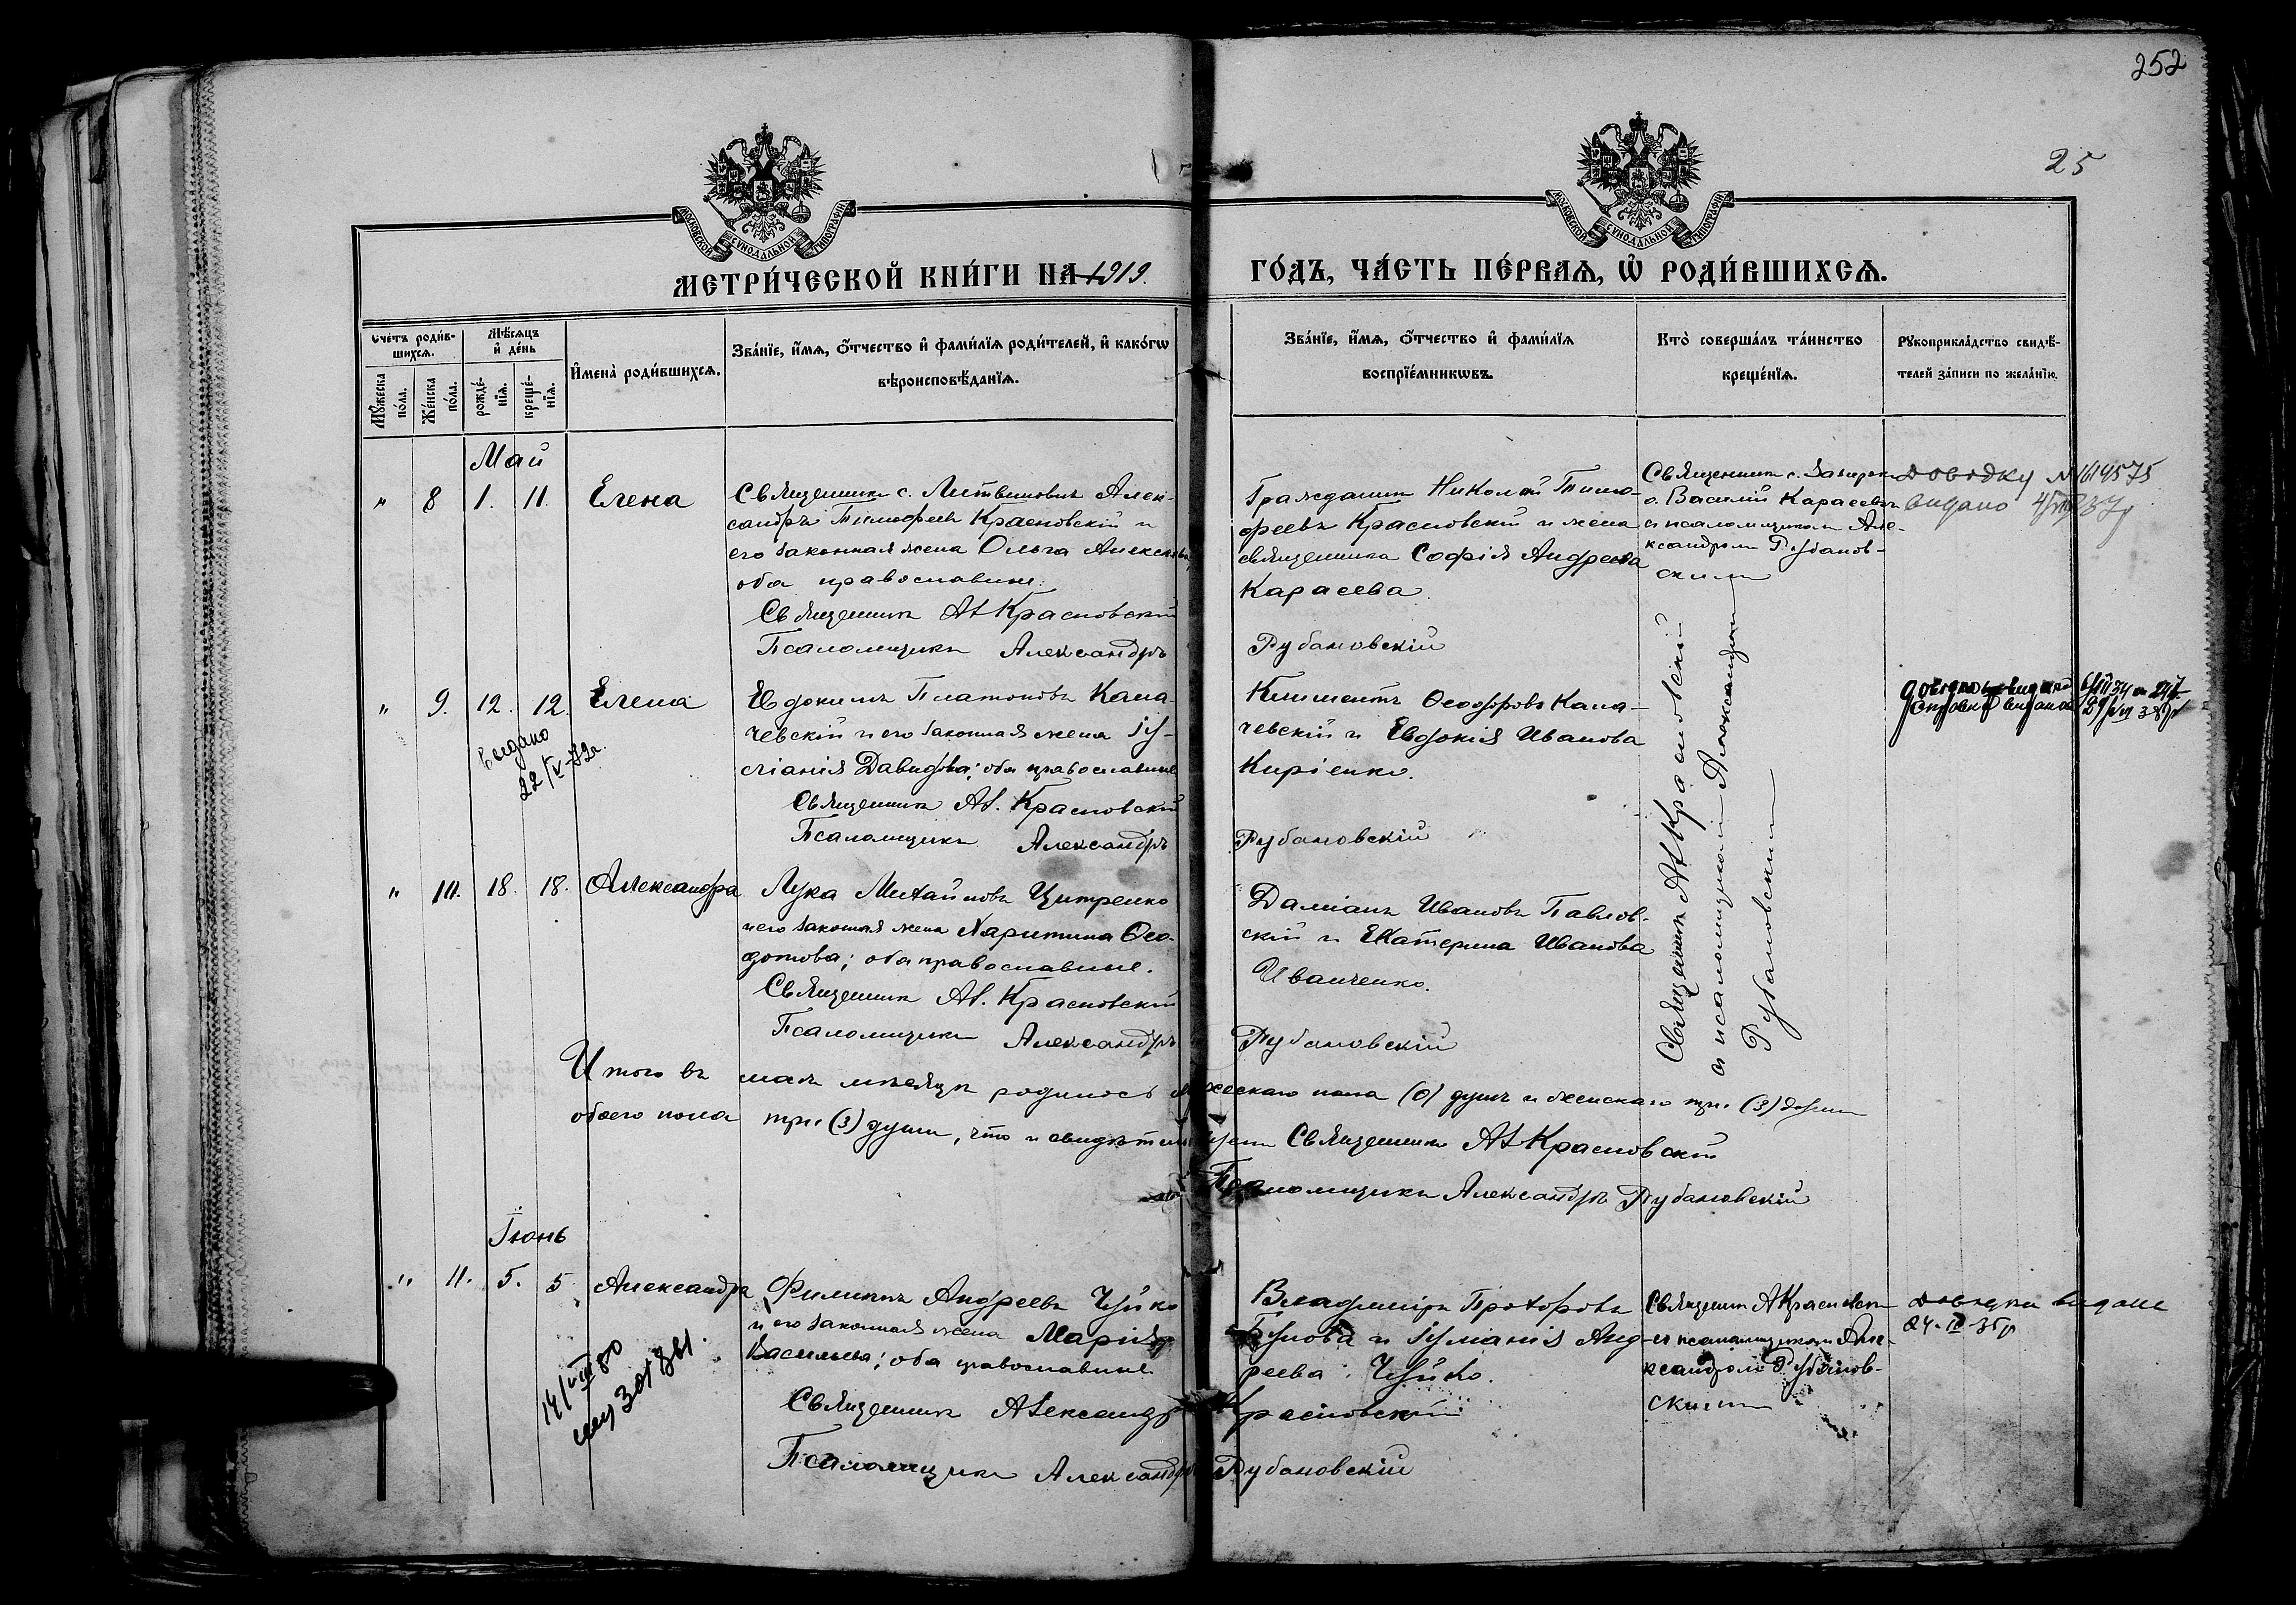 252
25
МОСКОВСКОЙ СУНОДАЛЬНОЙ ТИПОГРАФІИ
МОСКОВСКОЙ СУНОДАЛЬНОЙ ТИПОГРАФІИ
МЕТРИ́ЧЕСКОЙ КНИ́ГИ НА 1919. ГО́ДЪ, ЧА́СТЬ ПЕ́РВАѦ, Ѡ҆ РОДИ́ВШИХСѦ.
Сче́тъ роди́в-
шихсѧ.
Мꙋ́жеска
по́ла.
Же́нска
по́ла.
Мѣ́сѧцъ
и҆ де́нь
рожде́-
нїѧ.
креще́-
нїѧ.
И҆мена̀ роди́вшихсѧ.
Зва́нїе, и҆́мѧ, ѻ҆́тчество и҆ фами́лїѧ роди́телей, и҆ како́гѡ
вѣроисповѣ́данїѧ.
Зва́нїе, и҆́мѧ, ѻ҆́тчество и҆ фами́лїѧ
воспрїе́мникѡвъ.
Кто̀ соверша́лъ та́инство
креще́нїѧ.
Рꙋкоприкла́дство свидѣ́-
телей за́писи по жела́нїю.
Май
" 8 1. 11. Елена
Священникъ с. Литвиновки Алек-
сандръ Тимофеевъ Красновскій и
его законная жена Ольга Алексеева,
оба православные.
Священникъ Ал Красновскій
Псаломщикъ Александръ Рубановскій
Гражданинъ Николай Тимо-
феевъ Красновскій и жена
священника Софія Андреева
Карасева.
Священникъ с.
о. Василій Карасевъ
съ псаломщикомъ Але-
ксандромъ Рубанов-
скимъ
Довідку № 1614575
видано 37р
" 9. 12. 12. Елена
Евдокимъ Платоновъ Кала-
чевскій и его законная жена Іу-
стіанія Давидова; оба православные
Священникъ Ал. Красновскій
Псаломщикъ Александръ Рубановскій
Климентъ Ѳеодоровъ Кала-
чевскій и Евдокія Иванова
Киріенко.
видано
22/V-72г.
Священникъ Ал Красновскій
съ псаломщикомъ Александромъ
Рубановскимъ
" 10. 18. 18. Александра
Лука Михайловъ Цитренко
и его законная жена Харитина Ѳео-
дотова; оба православные.
Священникъ Ал. Красновскій
Псаломщикъ Александръ Рубановскій
Даміанъ Ивановъ Павлов-
скій и Екатерина Иванова
Иванченко.
Итого въ маѣ мѣсяцѣ родилось мужескаго пола (0) душъ и женскаго три (3) души
обоего пола три (3) души, что и свидѣтельствуемъ Священникъ Ал Красновскій
Псаломщикъ Александръ Рубановскій
Іюнь
" 11. 5. 5. Александра
Филиппъ Андреевъ Чуйко
и его законная жена Марія
Васильева; оба православные
Священникъ Александръ Красновскій
Псаломщикъ Александръ Рубановскій
Владиміръ Прохоровъ
и Іуліанія Анд-
реева Чуйко.
Священникъ А Красновскій
съ псаломщикомъ Але-
ксандромъ Рубанов-
скимъ
24-IV-35р
14/VIII 80